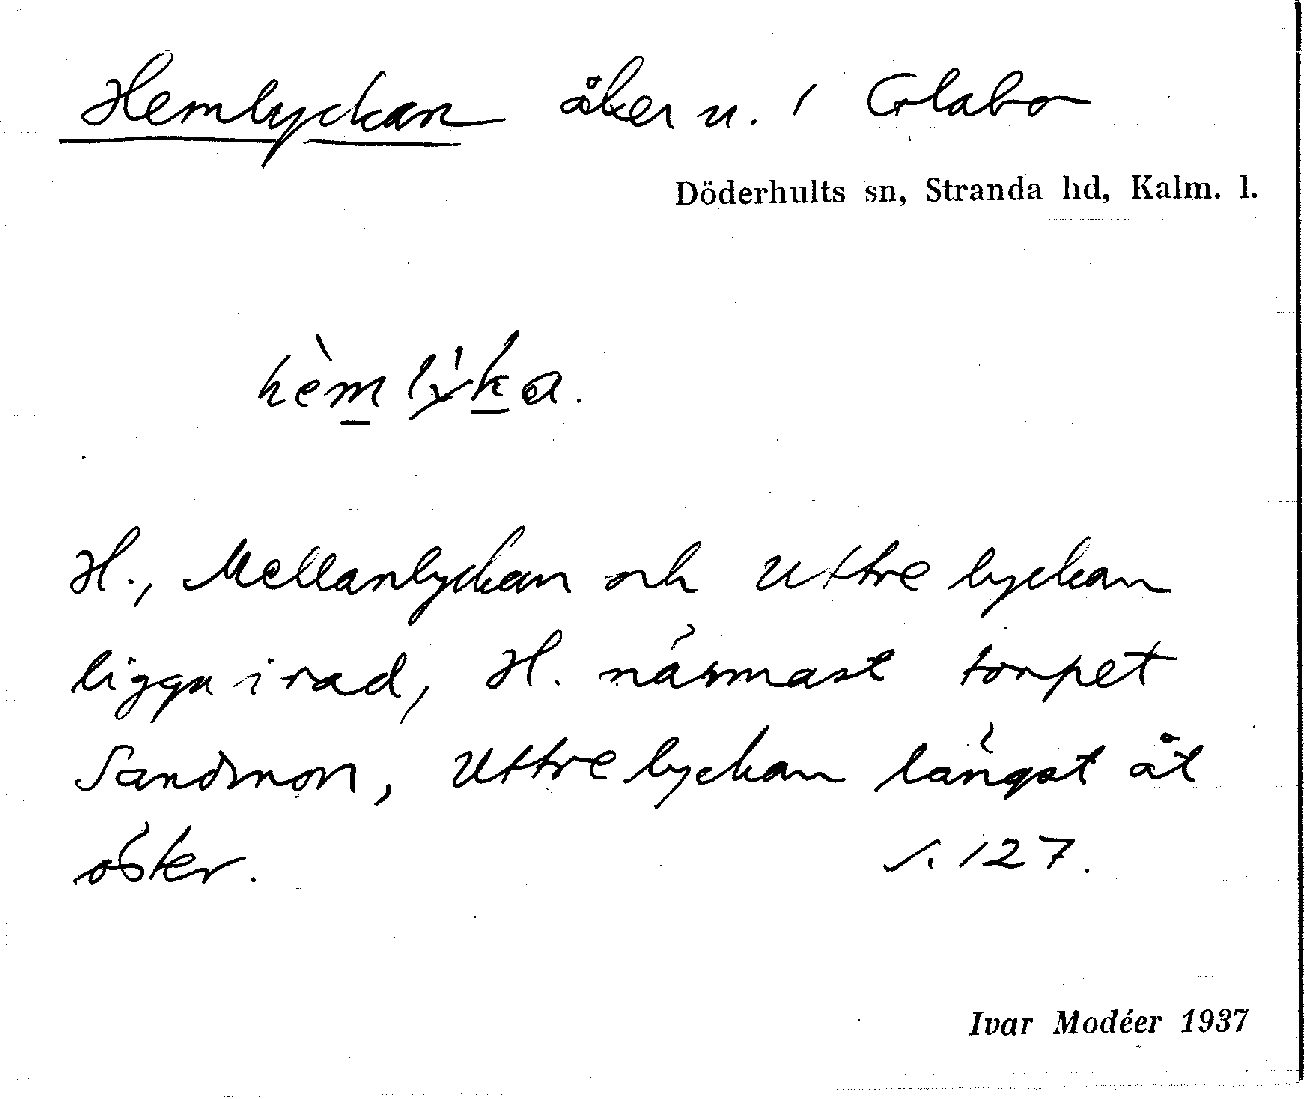 Hemlyckan åker u. 1 Glabo
Döderhults sn, Stranda hd, Kalm. l.
hèmlýka.
H., Mellanlyckan och Yttre lyckan
ligga i rad, H. närmast torpet
Sandmon, Yttre lyckan längst åt
öster. s. 127.
Ivar Modéer 1937